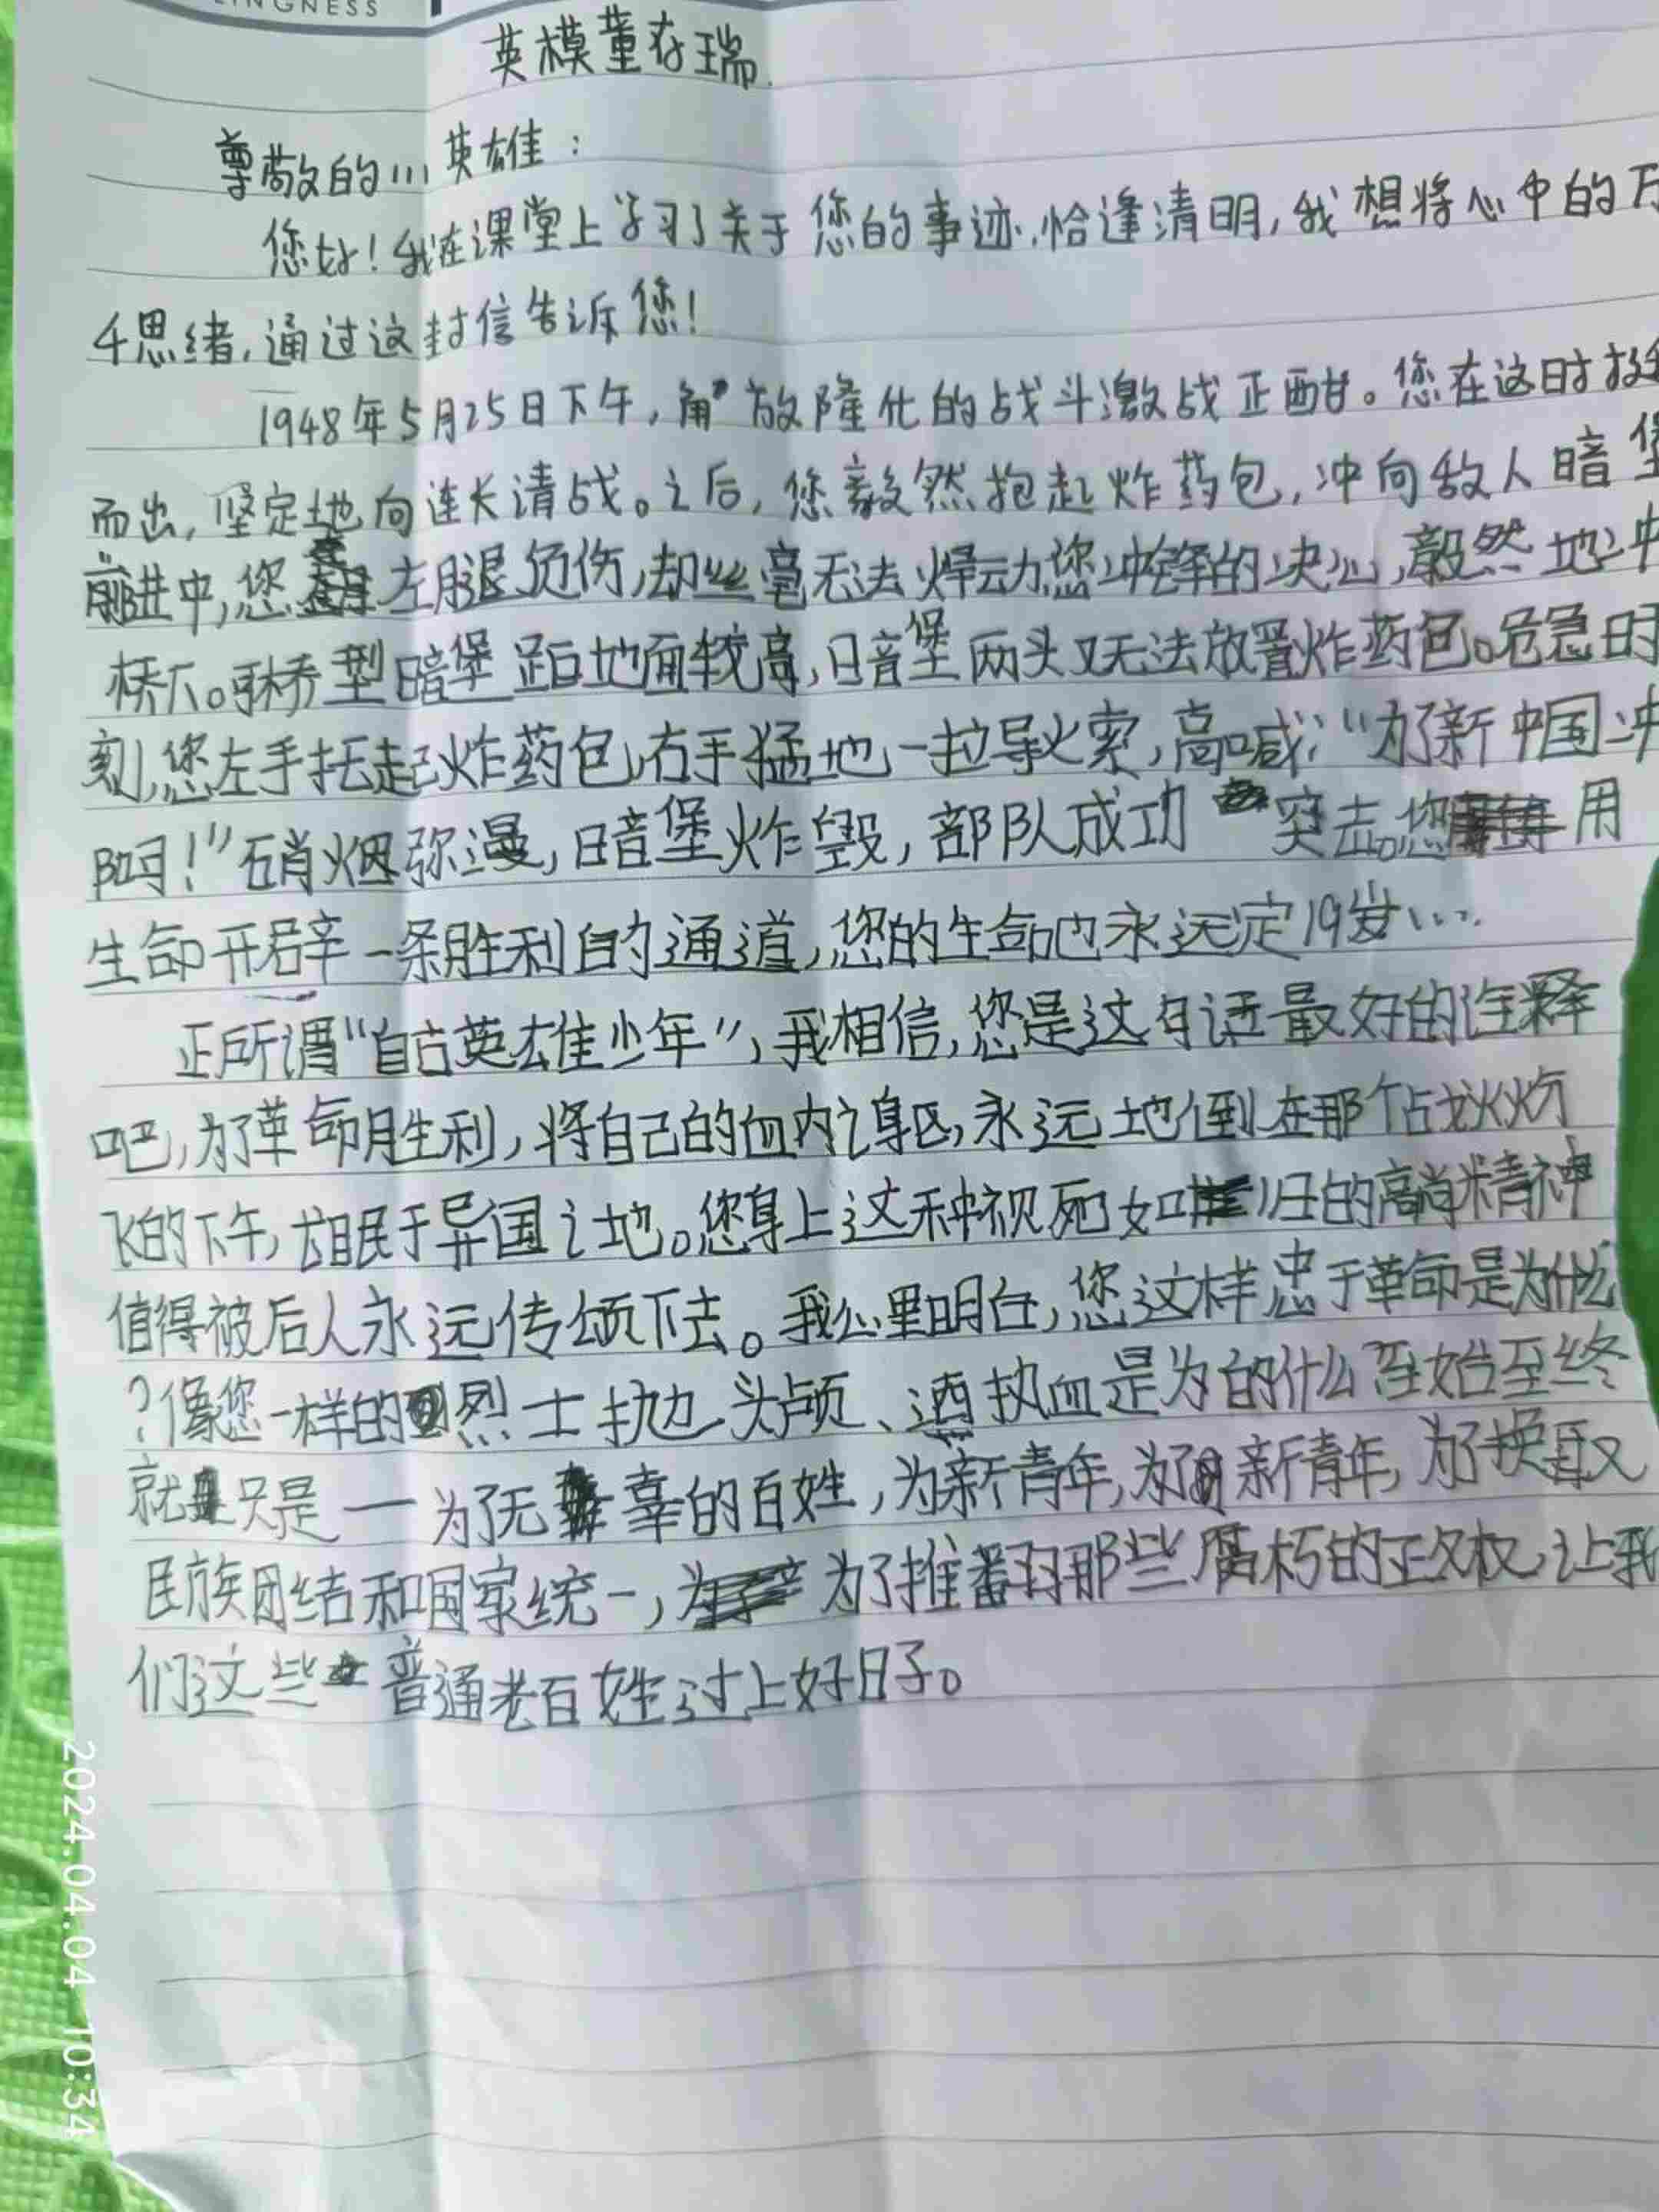 LINGNESS
英模董存瑞
尊敬的…英雄：
您好！我在课堂上学习了关于您的事迹，恰逢清明，我想将心中的万
千思绪，通过这封信告诉您！
1948年5月25日下午，解放隆化的战斗激战正酣。您在这时挺
而出，坚定地向连长请战。之后，您毅然抱起炸药包，冲向敌人暗堡
前进中，您左腿负伤，却丝毫无法撼动您冲锋的决心，毅然地冲
桥下。可桥型暗堡距地面较高，暗堡两头又无法放置炸药包。危急时
刻，您左手托起炸药包，右手猛地一拉导火索，高喊：“为了新中国冲
啊！”硝烟弥漫，暗堡炸毁，部队成功突击。您用
生命开辟一条胜利的通道，您的生命也永远定19岁…
正所谓“自古英雄少年”，我相信，您是这句话最好的诠释
吧，为了革命胜利，将自己的血肉之躯，永远地倒在那个战火纷
飞的下午，长眠于异国之地。您身上这种视死如归的高尚精神
值得被后人永远传颂下去。我心里明白，您这样忠于革命是为什么
？像您一样的烈士抛头颅、洒热血是为的什么？至始至终
就只是一为了无辜的百姓，为新青年，为了新青年，为了换取
民族团结和国家统一，为了推翻那些腐朽的政权，让我
们这些普通老百姓过上好日子。
2024.04.04 10:34